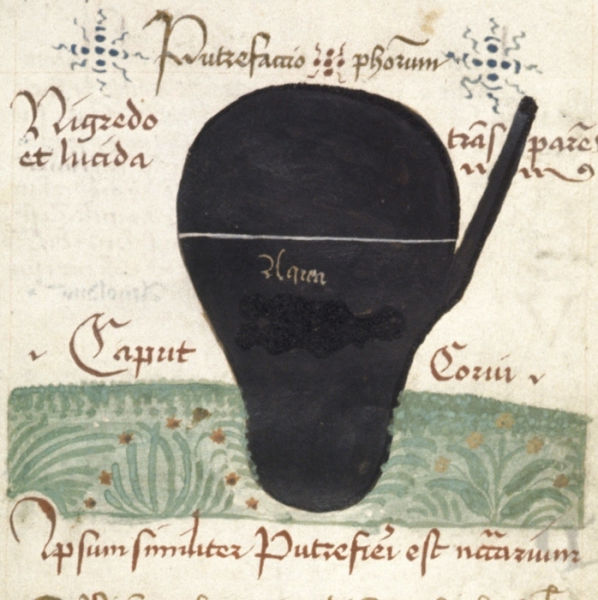 Putrefactio phorūm
Nigredo
et lucida
trās parē
Aqua
Caput Corui
Ipsum similiter Putrefieri est